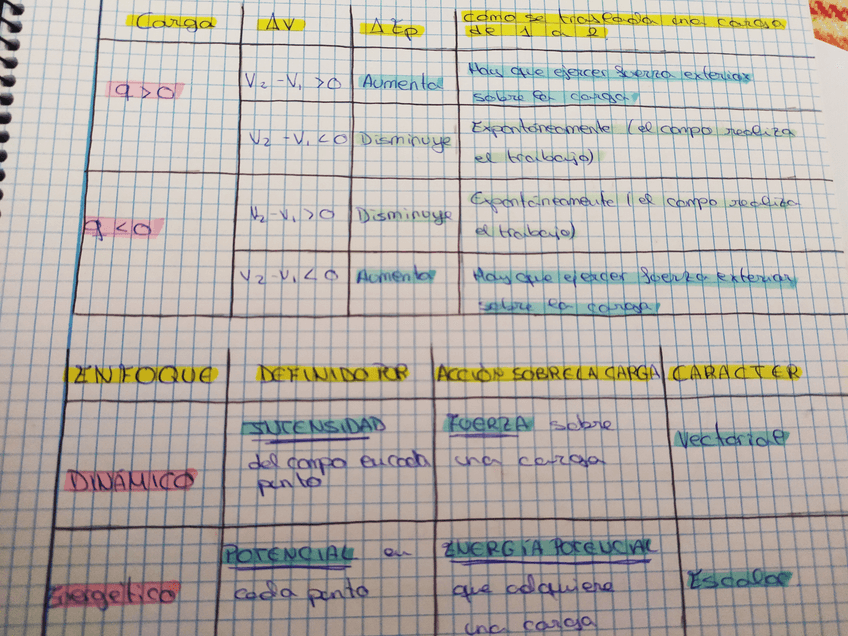 Carga ΔV ΔEp Cómo se traslada una carga
de 1 a 2
q > 0 V₂ - V₁ > 0 Aumenta Hay que ejercer fuerza exterior
sobre la carga
V₂ - V₁ < 0 Disminuye Expontáneamente (el campo realiza
el trabajo)
q < 0 V₂ - V₁ > 0 Disminuye Expontáneamente (el campo realiza
el trabajo)
V₂ - V₁ < 0 Aumenta Hay que ejercer fuerza exterior
sobre la carga
ENFOQUE DEFINIDO POR ACCIÓN SOBRE LA CARGA CARACTER
DINÁMICO INTENSIDAD FUERZA sobre Vectorial
del campo en cada una carga
punto
Energético POTENCIAL en ENERGÍA POTENCIAL Escalar
cada punto que adquiere
una carga